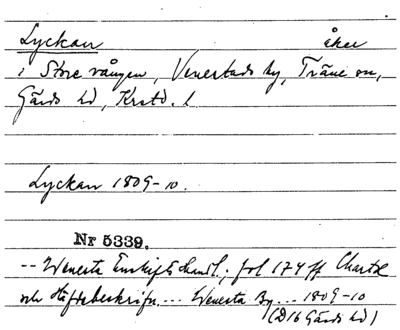 Lyckan åker
i Store vången, Venestads by, Träne sn,
Gärds hd, Krstd. l
Lyckan 1809-10.
Nr 5339.
-- Wenesta Enskifts Handl., fol 174 ff Chartæ
och Häfdebeskrifn... Wenesta By... 1809-10
(D16 Gärds hd)